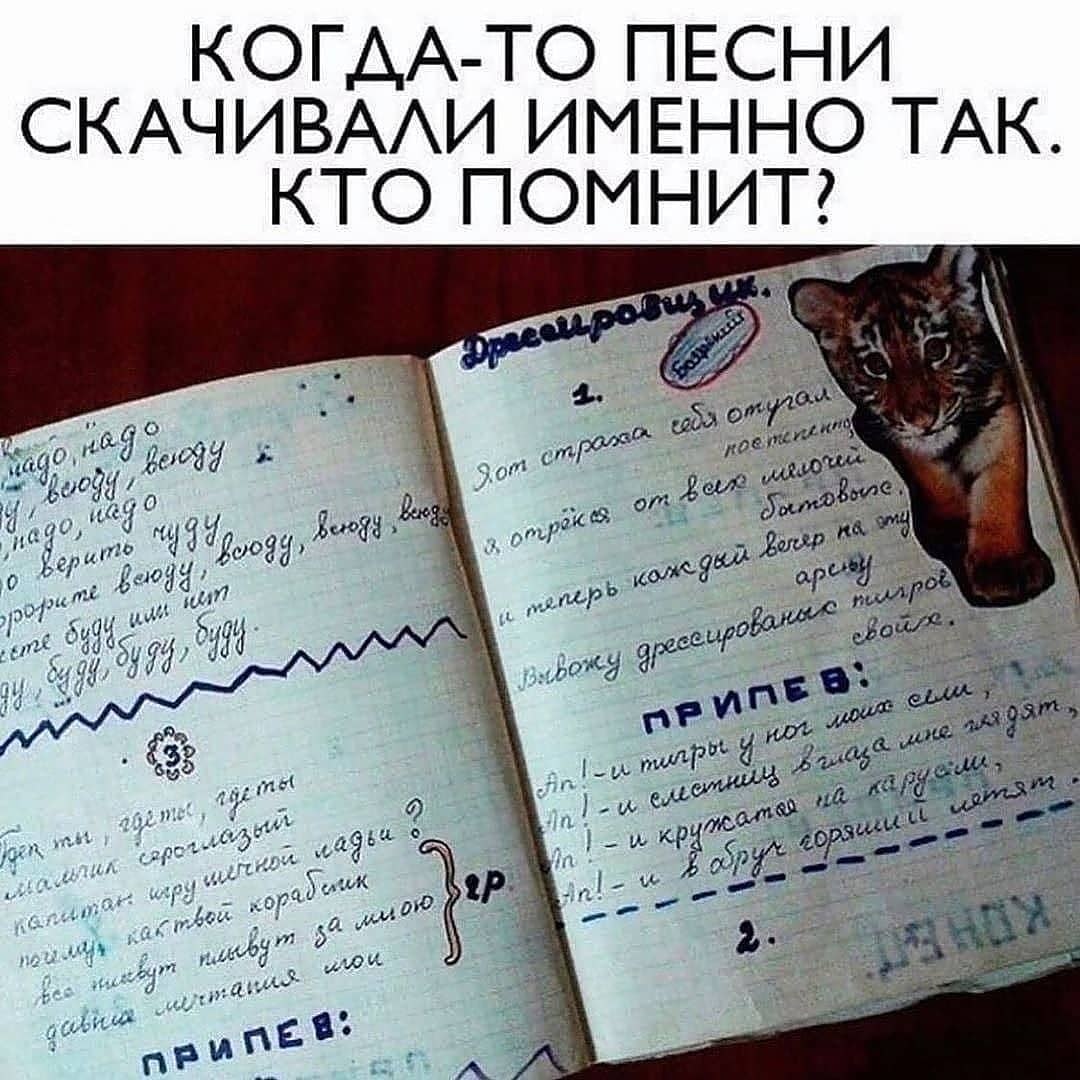 КОГДА-ТО ПЕСНИ
СКАЧИВАЛИ ИМЕННО ТАК.
КТО ПОМНИТ?
надо, надо
, всюду, всюду
, надо, надо
верить чуду
всюду, всюду, всюду
буду или нет
, буду, буду, буду.
3
ты, где ты, где ты
мальчик сероглазый
капитан игрушечной ладьи ?
почему, как твой кораблик
все плывут плывут за мною
давние мечтания мои
гр.
ПРИПЕВ:
Дрессировщик.
Боярский
1.
Я от страха себя отучал
постепенно
а отрёкся от всех мелочей
бытовых.
и теперь каждый вечер на эту
арену
Вывожу дрессированых тигров
своих.
ПРИПЕВ:
Ап! - и тигры у ног моих сели,
Ап! - и с лестниц в глаза мне глядят,
Ап! - и кружатся на карусели,
Ап! - и в обруч горящий летят.
2.
КОНЕЦ